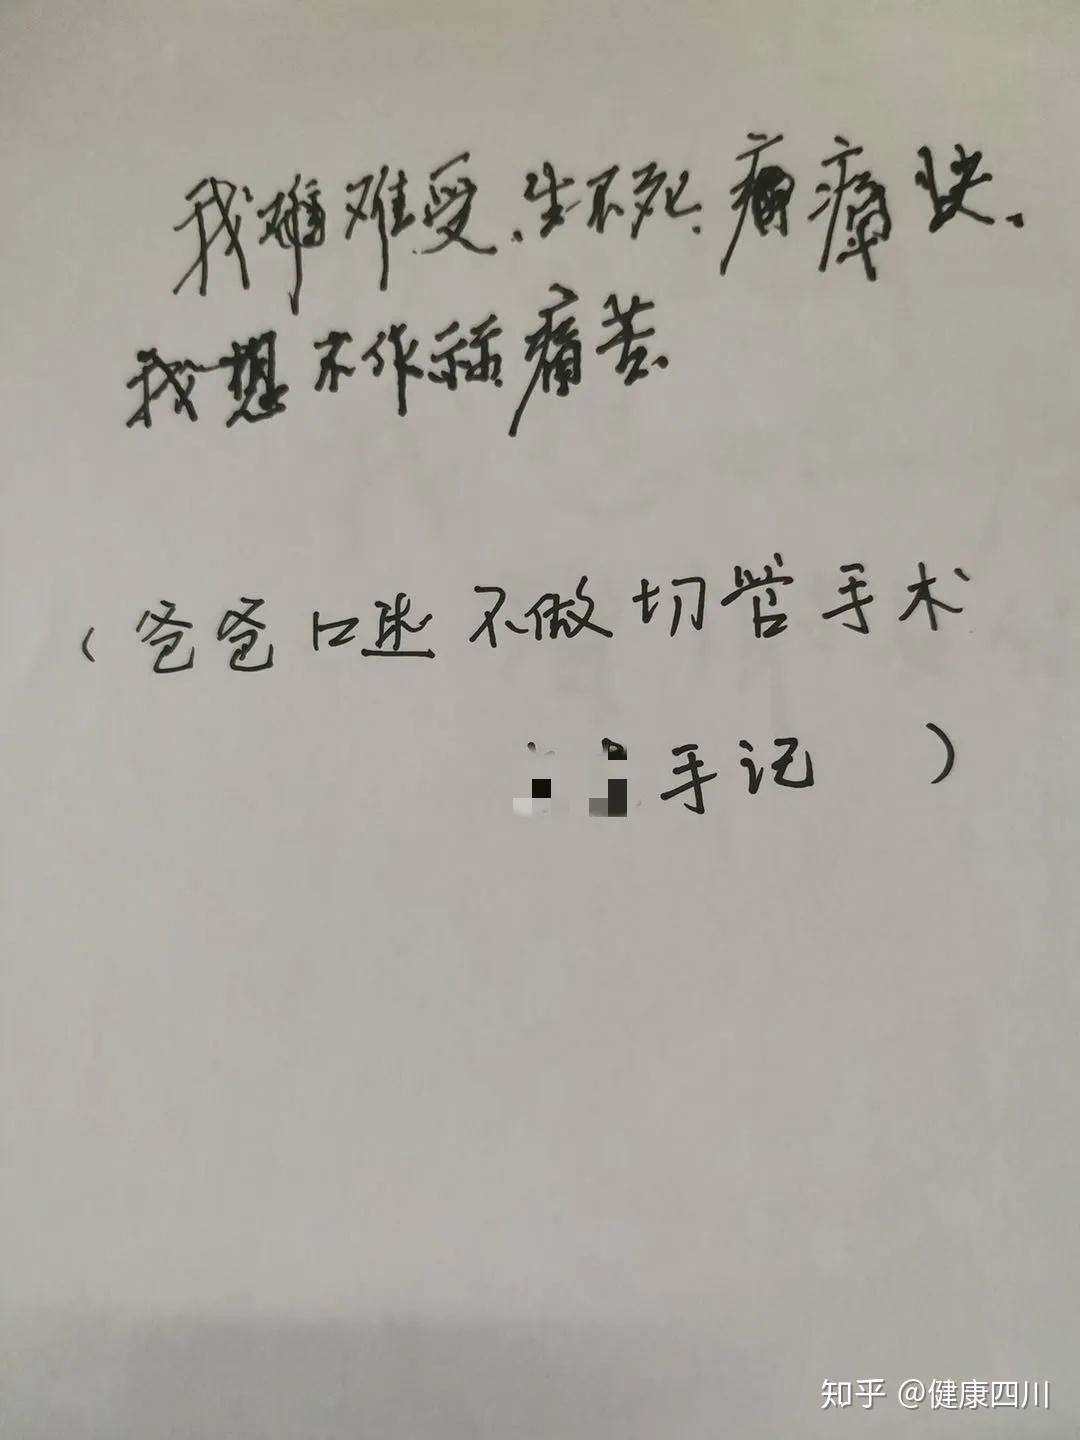 我难难受.生不死.痛痛快.
我想不作 痛苦.
（爸爸口述不做切管手术
手记 ）
知乎 @健康四川